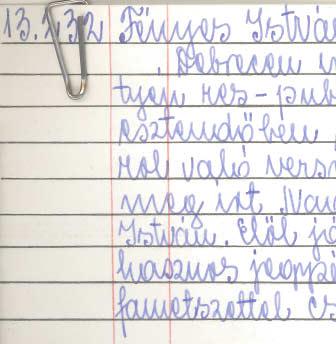 13.232 Fényes Istvá
Debrecen v
tyén res-pub
esztendőben
ról való vers
meg írt Iván
István. Elől já
hasznos jegyzé
fametszettel és